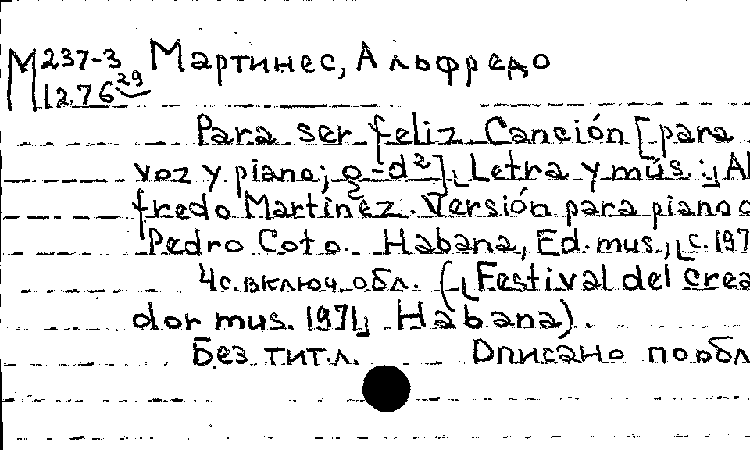 М 237-3 Мартинес, Альфредо
1276 29
Para ser feliz. Canción [para
voz y piano; g-d²]. Letra y mús.: Al
fredo Martínez. Versión para piano d
Pedro Coto. Habana, Ed. mus., с. 197
4с. включ. обл. (Festival del crea
dor mus. 1971. Habana).
Без тит. л. Описано по обл